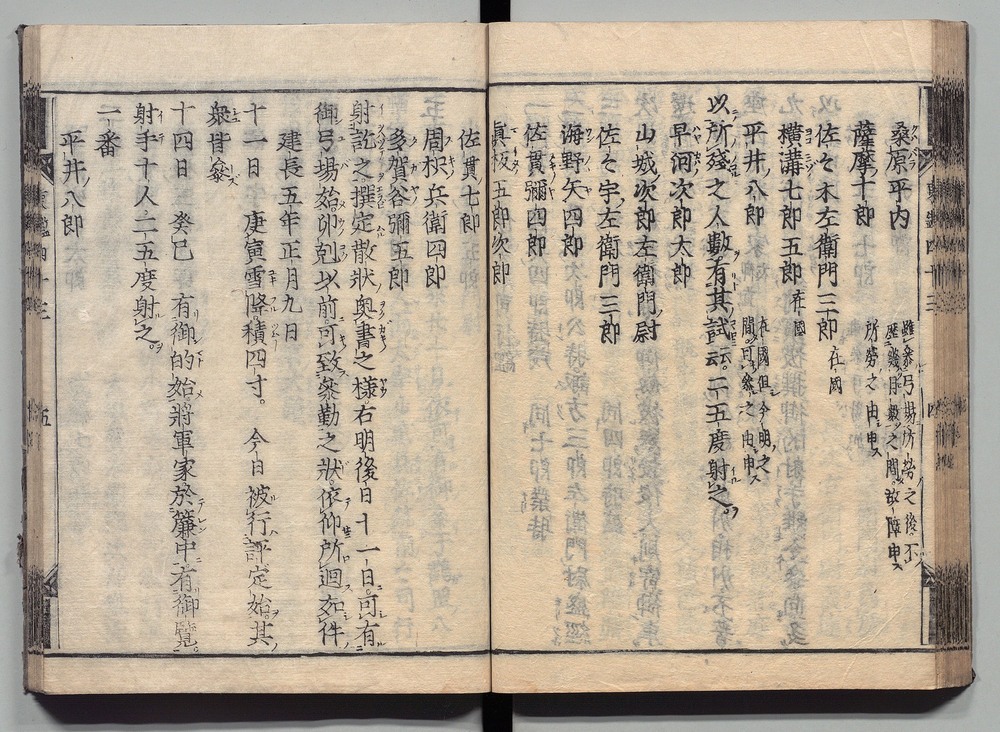 桑原平内
雖參弓場坊勞之後不
歴幾日數之間故障申
薩摩十郎
所勞之由申
佐々木左衛門三郎 在國
横溝七郎五郎 在國
平井八郎
在國但今明之
間可參之由申
以所殘之人數有其試云二五度射之
早河次郎太郎
山城次郎左衛門尉
佐々宇左衛門三郎
海野矢四郎
佐貫彌四郎
眞板五郎次郎
佐貫七郎
周枳兵衛四郎
多賀谷彌五郎
射訖之撰定散狀奧書之樣右明後日十一日可有
御弓場始卯剋以前可致參勤之狀依仰所廻如件
建長五年正月九日
十一日 庚寅雪降積四寸 今日被行評定始其
衆皆參
十四日 癸巳 有御的始將軍家於簾中有御覽
射手十人二五度射之
一番
平井八郎
東鑑四十三
五
四